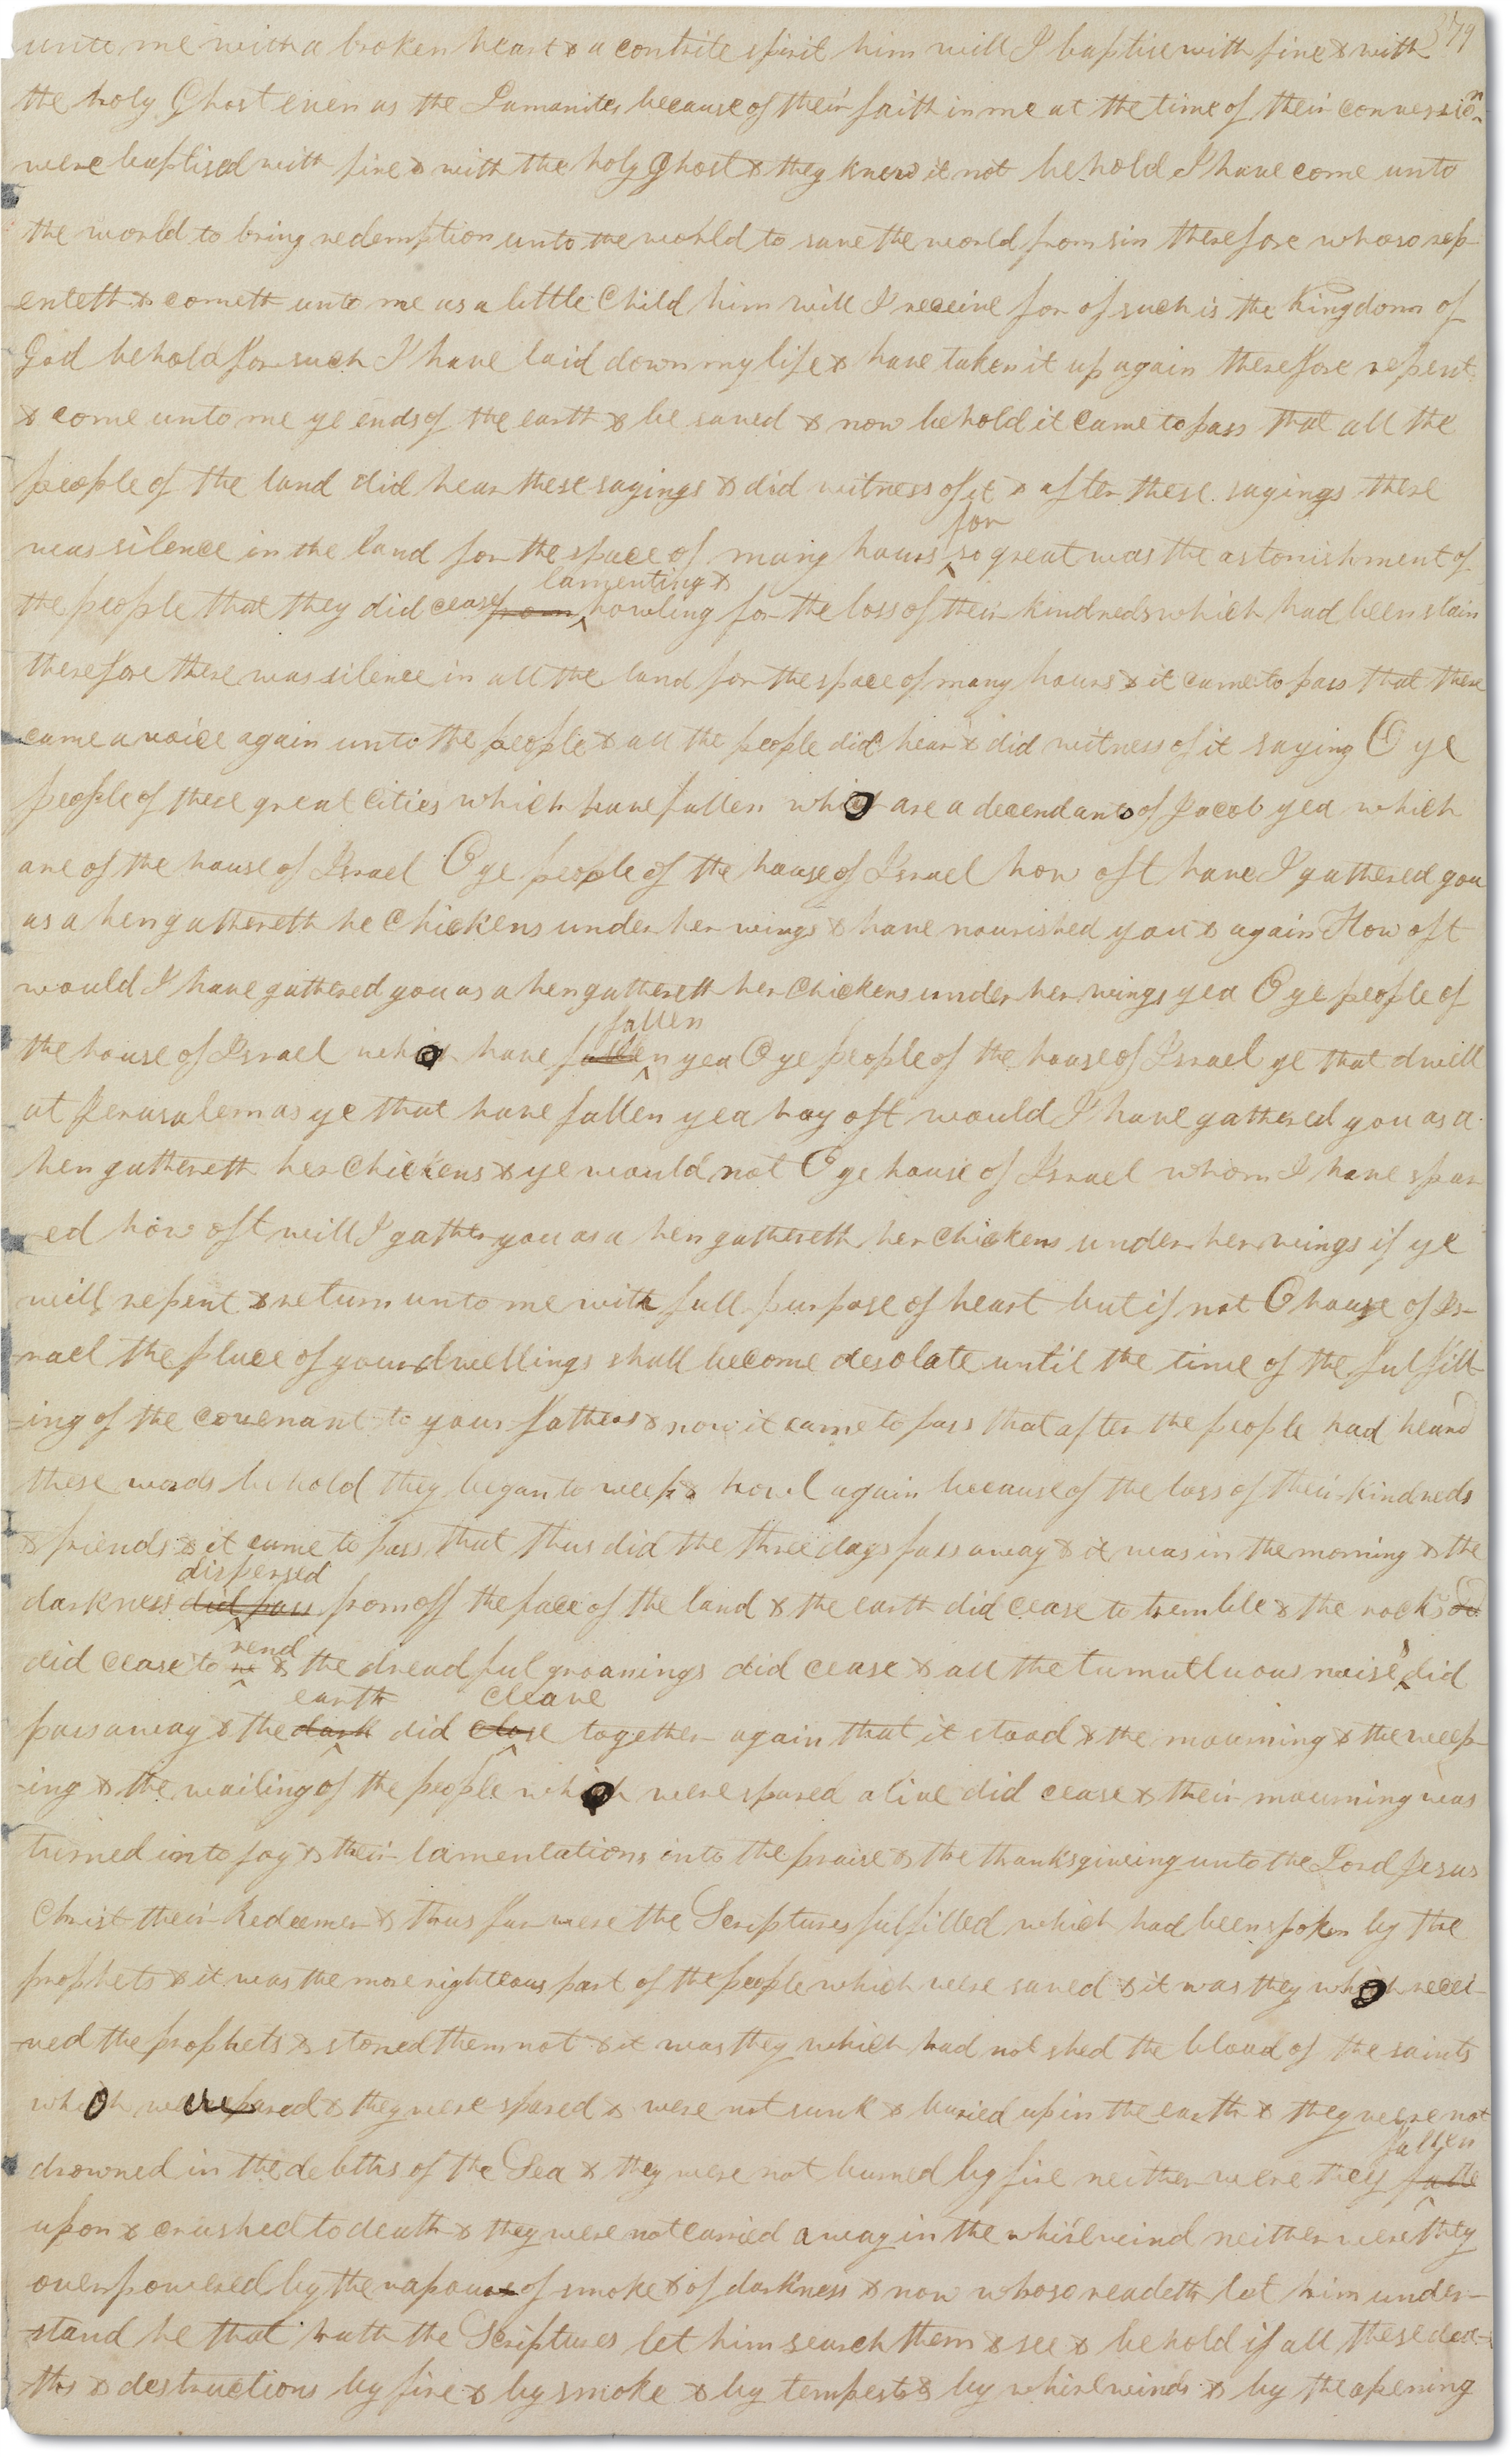 379
unto me with a broken heart & a contrite spirit him will I baptise with fire & with
the holy Ghost even as the Lamanites because of their faith in me at the time of their conversion
were baptised with fire & with the holy ghost & they knew it not behold I have come unto
the world to bring redemption unto the world to save the world from sin therefore whoso rep-
enteth & cometh unto me as a little Child him will I receive for of such is the Kingdom of
God behold for such I have laid down my life & have taken it up again therefore repent
& come unto me ye ends of the earth & be saved & now behold it came to pass that all the
people of the land did hear these sayings & did witness of it & after these sayings there
was silence in the land for the space of many hours for so great was the astonishment of
the people that they did cease from lamenting & howling for the loss of their kindreds which had been slain
therefore there was silence in all the land for the space of many hours & it came to pass that there
came a voice again unto the people & all the people did hear & did witness of it saying O ye
people of these great cities which have fallen who are a decendants of Jacob yea which
are of the house of Israel O ye people of the house of Israel how oft have I gathered you
as a hen gathereth he Chickens under her wings & have nourished you & again How oft
would I have gathered you as a hen gathereth her Chickens under her wings yea O ye people of
the house of Israel who have fallen fallen yea O ye people of the house of Israel ye that dwell
at Jerusalem as ye that have fallen yea hay oft would I have gathered you as a
hen gathereth her Chickens & ye would not O ye house of Israel whom I have spar
ed how oft will I gather you as a hen gathereth her Chickens under her wings if ye
will repent & return unto me with full purpose of heart but if not O house of Is-
rael the place of your dwellings shall become desolate until the time of the fulfill
-ing of the covenant to your fathers & now it came to pass that after the people had heard
these words behold they began to weep & howl again because of the loss of their kindreds
& friends & it came to pass that thus did the three days pass away & it was in the morning & the
darkness did pass dispersed from off the face of the land & the earth did cease to tremble & the rocks
did cease to re rend & the dreadful groanings did cease & all the tumutluous noises did
pass away & the dark earth did close cleave together again that it stood & the mourning & the weep-
-ing & the wailing of the people who were spared alive did cease & their mourning was
turned into joy & their lamentations into the praise & the thanksgiveing unto the Lord Jesus
Christ their Redeemer & thus far were the Scriptures fulfilled which had been spoken by the
prophets & it was the more righteous part of the people which were saved & it was they who recei-
-ved the prophets & stoned them not & it was they which had not shed the blood of the saints
who were spared & they were spared & were not sunk & buried up in the earth & they were not
drowned in the debths of the Sea & they were not burned by fire neither were they falle fallen
upon & crushed to death & they were not carried away in the whirlwind neither were they
overpowered by the vapour of smoke & of darkness & now whoso readeth let him under-
stand he that hath the Scriptures let him search them & see & behold if all these dea-
ths & destructions by fire & by smoke & by tempests & by whirlwinds & by the opening